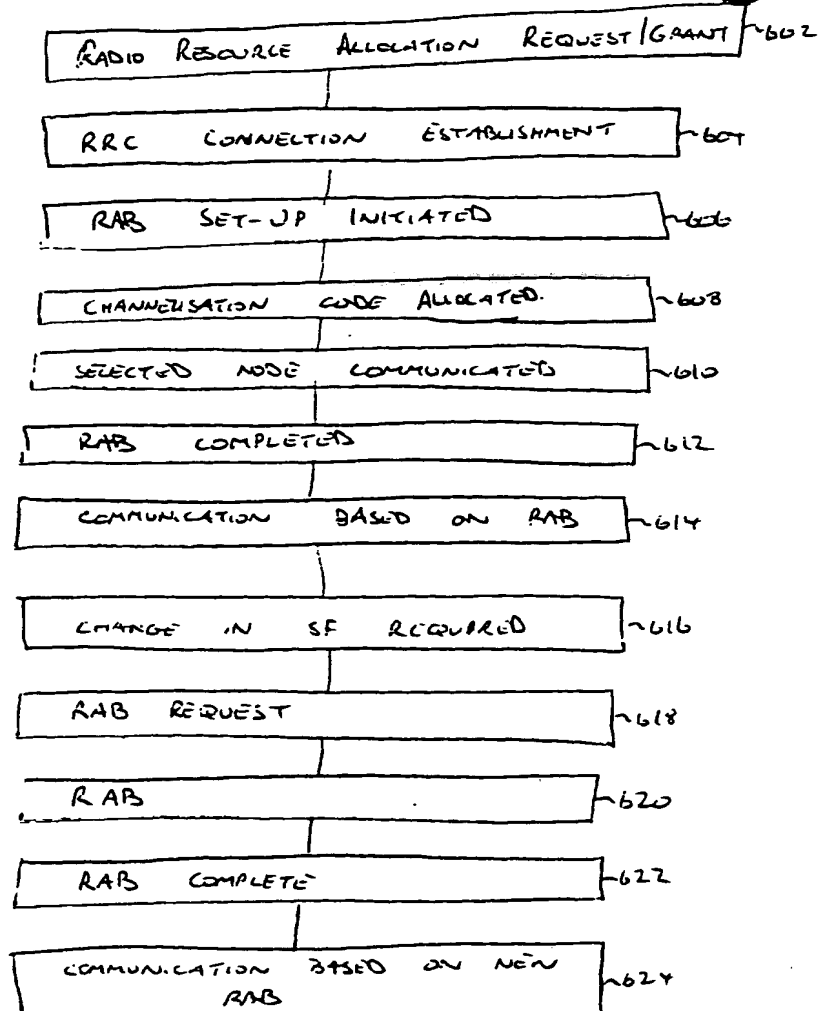 RADIO RESOURCE ALLOCATION REQUEST/GRANT 602
RRC CONNECTION ESTABLISHMENT 604
RAB SET-UP INITIATED 606
CHANNELISATION CODE ALLOCATED. 608
SELECTED NODE COMMUNICATED 610
RAB COMPLETED 612
COMMUNICATION BASED ON RAB 614
CHANGE IN SF REQUIRED 616
RAB REQUEST 618
RAB 620
RAB COMPLETE 622
COMMUNICATION BASED ON NEW 624
RAB